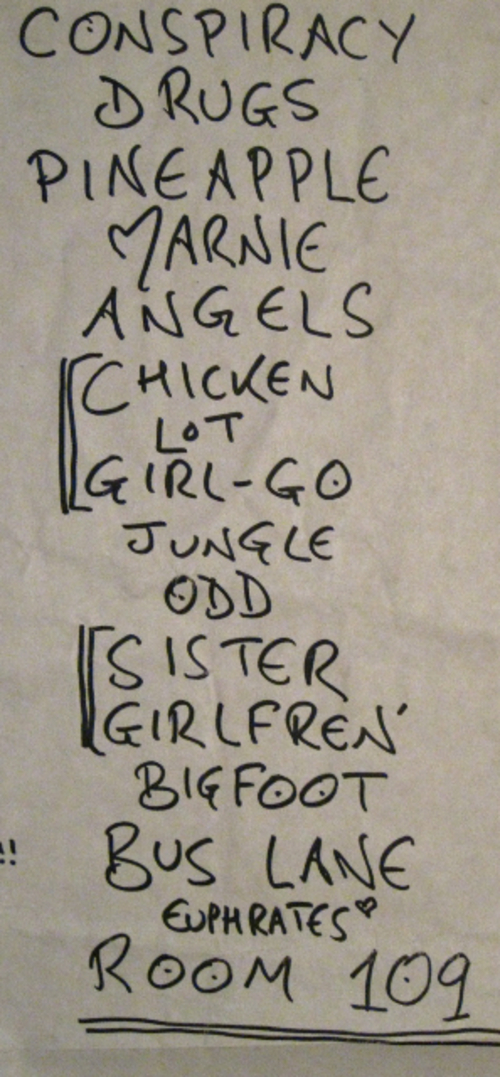 CONSPIRACY
DRUGS
PINEAPPLE
MARNIE
ANGELS
CHICKEN
LOT
GIRL-GO
JUNGLE
ODD
SISTER
GIRLFREN'
BIGFOOT
!!
BUS LANE
EUPHRATES♥
ROOM 109